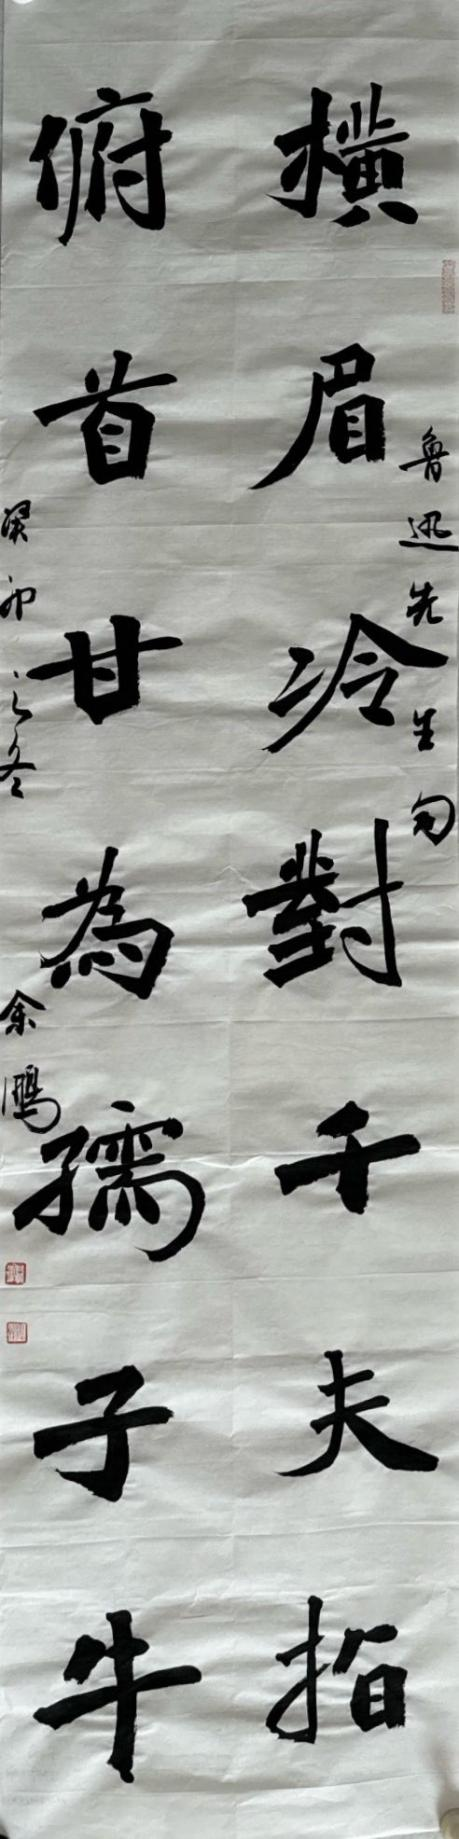 鲁迅先生句
橫眉冷對千夫指
俯首甘為孺子牛
癸卯之冬 余鵬